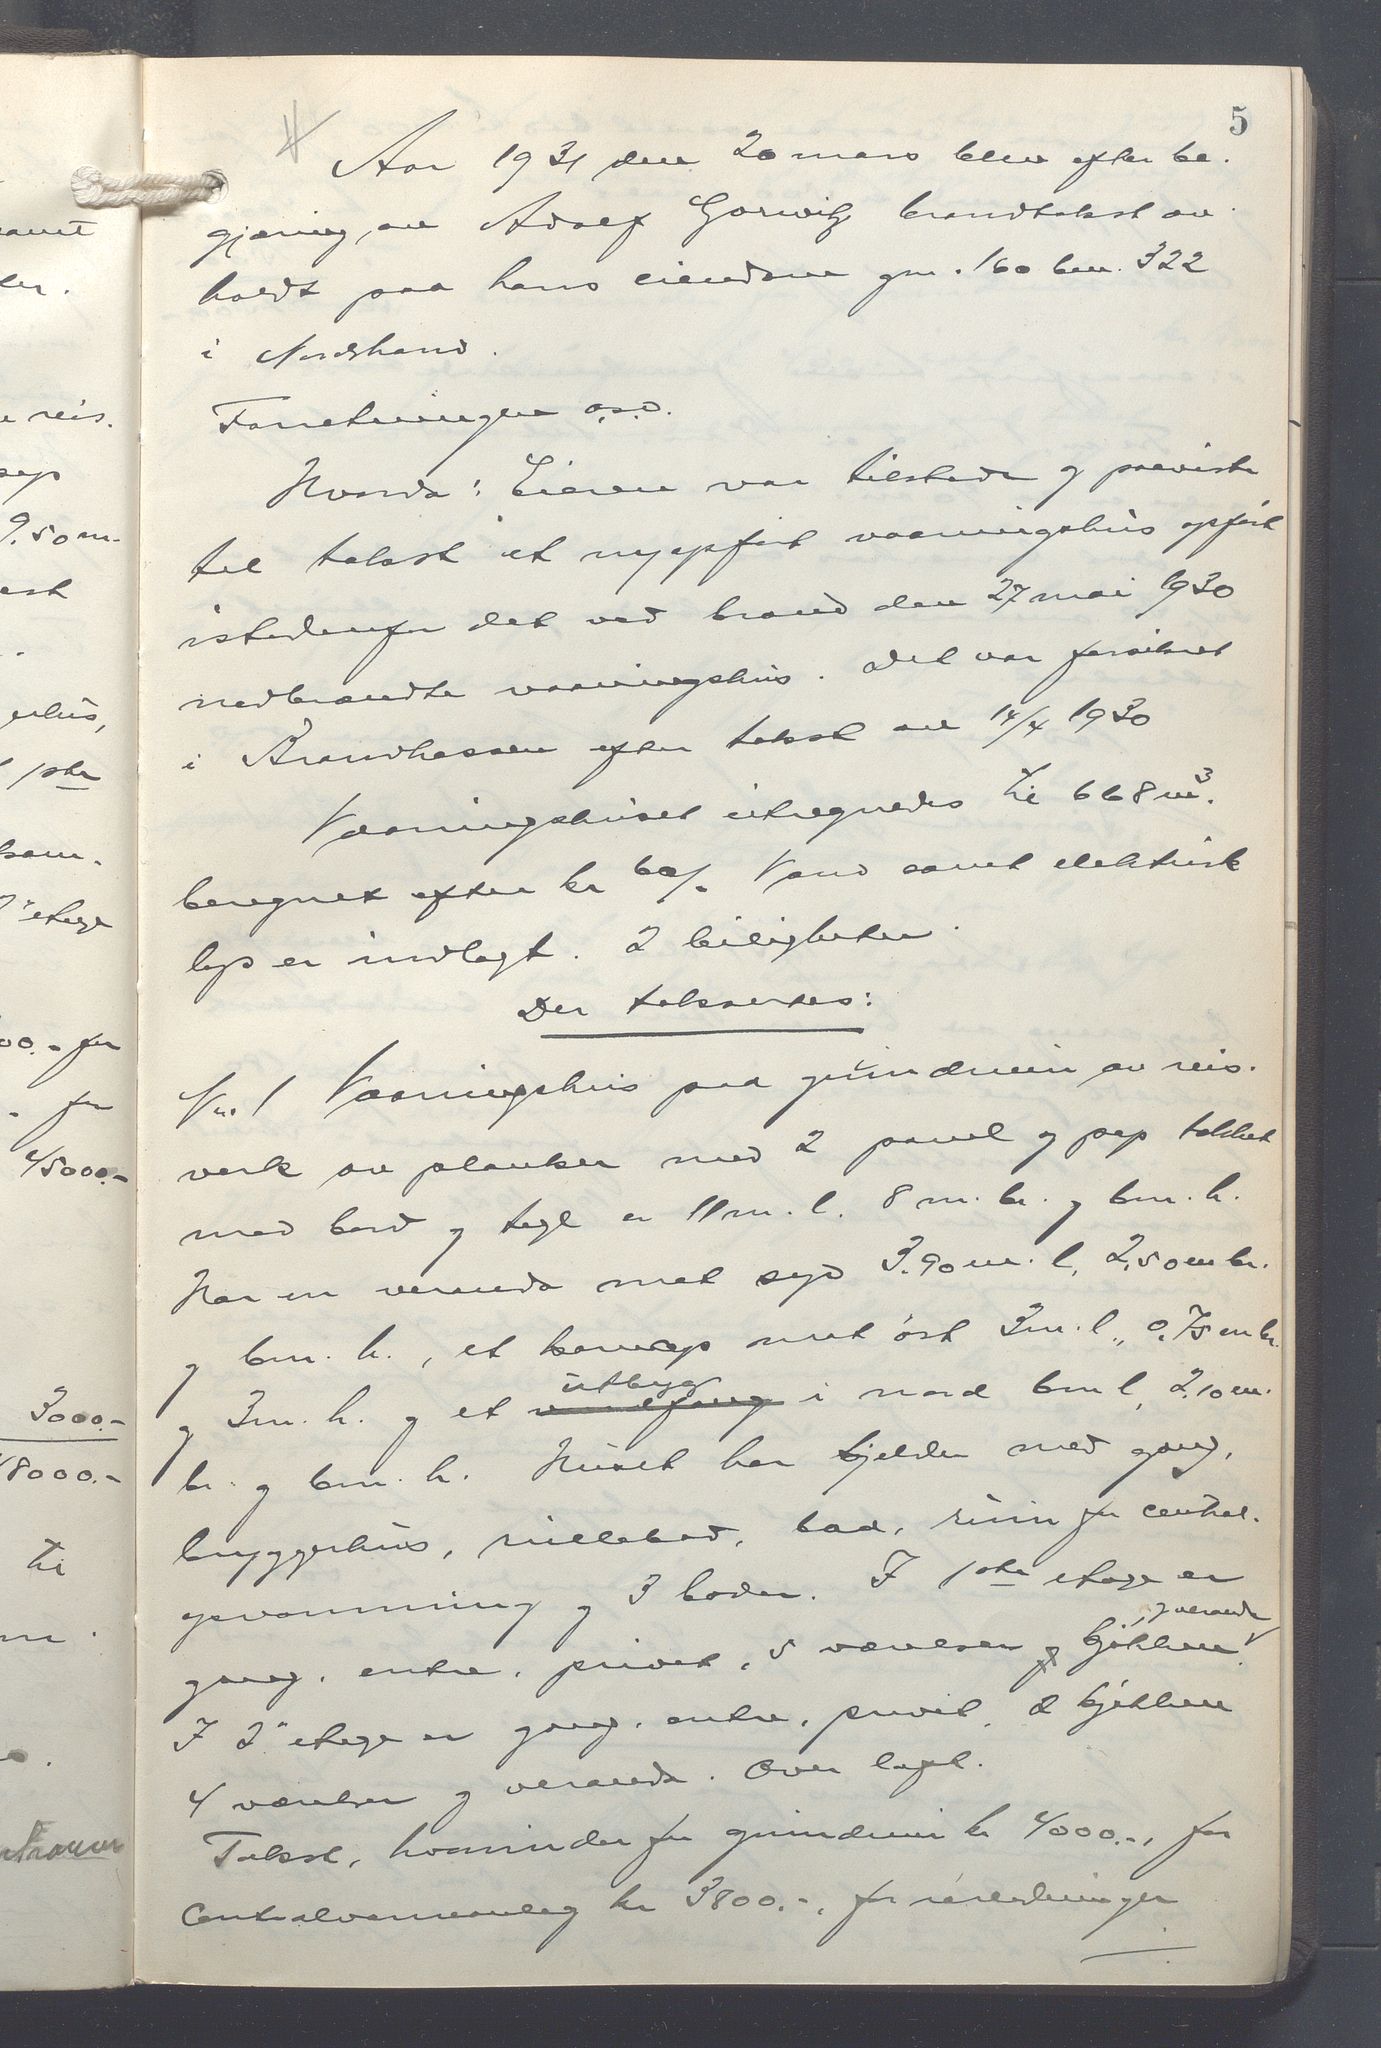 5
Aar 1931 den 20 mars blev efter be-
gjæring av Adolf Gorwitz brandtakst av-
holdt paa hans eiendom gnr. 160 bnr. 322
i Nordstrand.
Forretningen o.s.v.
Hvorda: Eieren var tilstede og paaviste
til takst et nyopført vaaningshus opført
istedenfor det ved brand den 27 mai 1930
nedbrændte vaaningshus. Det var forsikret
i Brandkassen efter takst av 14/4 1930
Vaaningshuset utregnedes til 668 m³.
beregnet efter kr 60/. Vand samt elektrisk
lys er indlagt. 2 leiligheter.
Der taksertes:
Nr. 1 Vaaningshus paa grundmur av reis-
verk av planker med 2 panel og pap tekket
med bord og tegl er 11 m. l. 8 m. br. og 6 m. h.
Har en veranda mot syd 3.90 m. l, 2,50 m br.
og 6 m. h., et karnap mot øst 3 m. l., 0.75 m br.
og 3 m. h. og et utbyg i nord 6 m l, 2.10 m.
br. og 6 m. h. Huset har kjelder med gang,
bryggerhus, rullebod, bad, rum for central-
opvarmning og 3 boder. I 1ste etage er
gang, entre, privet, 5 værelser kjøkken og veranda.
I 2" etage er gang, entre, privet, 2 kjøkken
4 værelser og veranda. Over loft.
Takst, hvorunder for grundmur kr 4000.-, for
Centralvarmeanlæg kr 3800.-, for rørledninger
samt
ler.
reis.
pap
9.50 m.
1ste
etage
for
for
45000.-
3000.-
48000.-
til